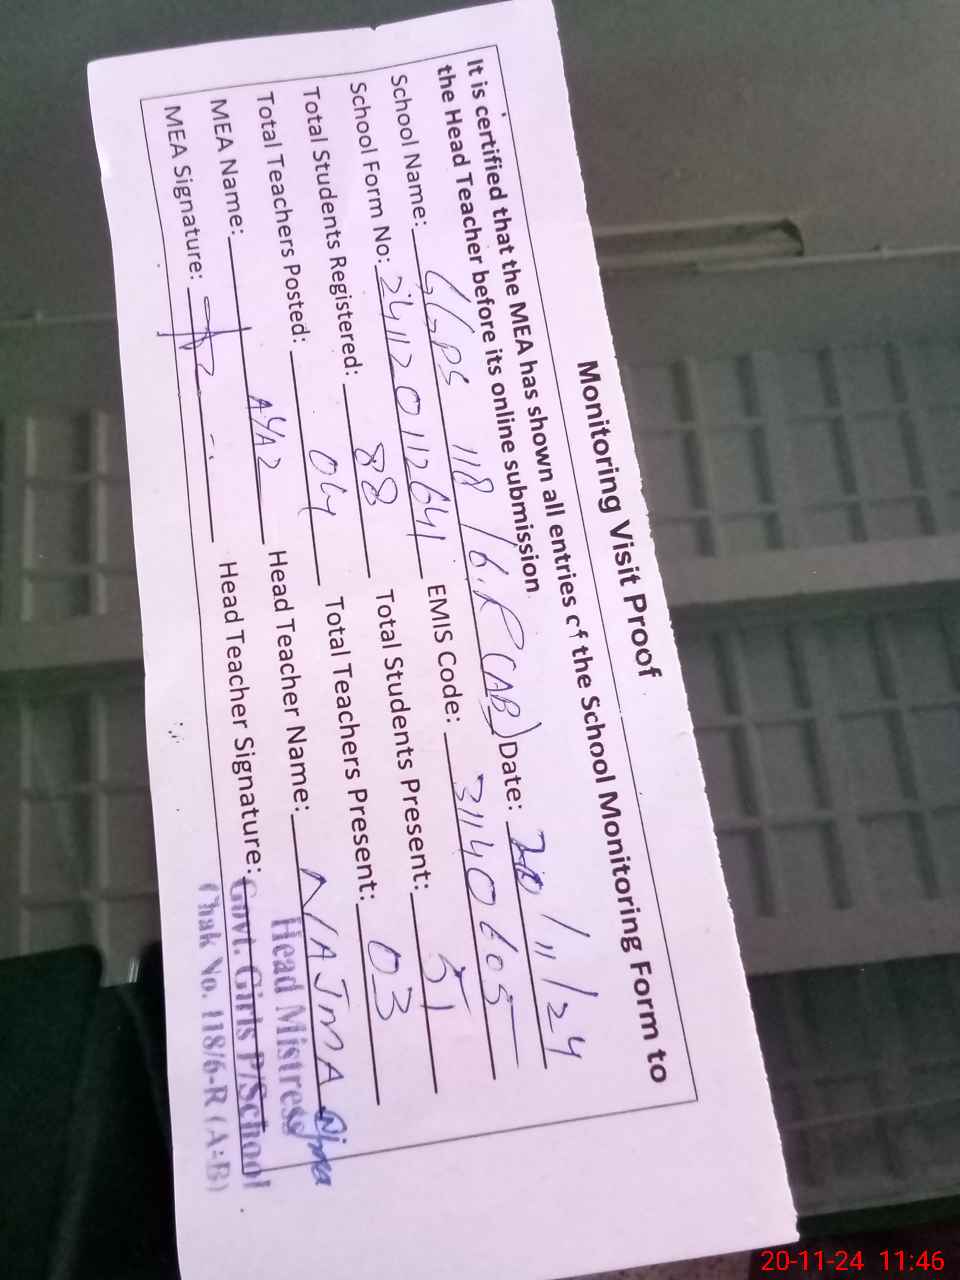 Monitoring Visit Proof
It is certified that the MEA has shown all entries of the School Monitoring Form to
the Head Teacher before its online submission
School Name: GGPS 118/6.R(AB) Date: 20/11/24
School Form No: 24112011264 EMIS Code: 31140605
Total Students Registered: 88 Total Students Present: 51
Total Teachers Posted: 04 Total Teachers Present: 03
MEA Name: Head Teacher Name: NAJMA
MEA Signature: Head Teacher Signature: Najma
Head Mistress
Govt. Girls P/School
Chak No. 118/6-R (A-B)
20-11-24 11:46